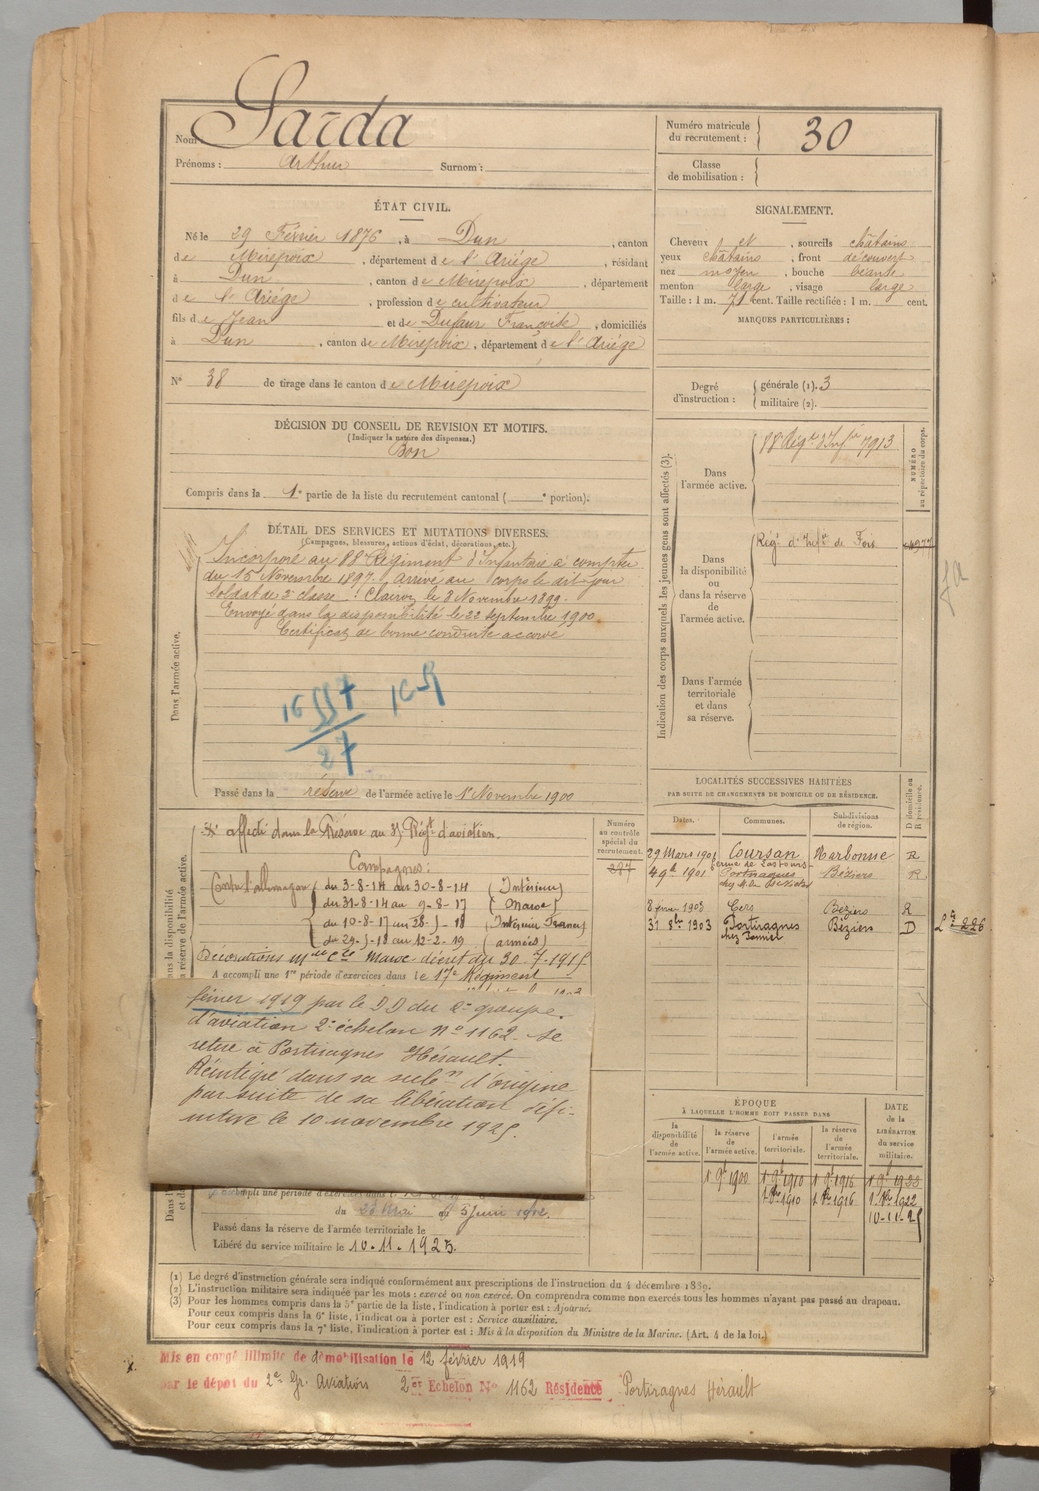 Nom Sarda
Prénoms : Arthur Surnom :
Numéro matricule du recrutement : 30
Classe de mobilisation :
ÉTAT CIVIL.
Né le 29 Février 1876, à Dun, canton
de Mirepoix, département de l'Ariége, résidant
à Dun, canton de Mirepoix, département
de l'Ariége, profession de cultivateur
fils de Jean et de Dufaur Françoise, domiciliés
à Dun, canton de Mirepoix, département de l'Ariége
N° 38 de tirage dans le canton de Mirepoix
SIGNALEMENT.
Cheveux et sourcils châtains
yeux châtains, front découvert
nez moyen, bouche béante
menton large, visage large
Taille : 1 m. 71 cent. Taille rectifiée : 1 m. cent.
MARQUES PARTICULIÈRES :
Degré d'instruction : générale (1). 3
militaire (2).
DÉCISION DU CONSEIL DE REVISION ET MOTIFS.
(Indiquer la nature des dispenses.)
Bon
Compris dans la 1e partie de la liste du recrutement cantonal ( e portion).
DÉTAIL DES SERVICES ET MUTATIONS DIVERSES.
(Campagnes, blessures, actions d'éclat, décorations, etc.)
Dans l'armée active.
Incorporé au 88e Régiment d'Infanterie à compter
du 15 Novembre 1897. Arrivé au corps le dit jour
Soldat de 2e classe. Clairon le 3 Novembre 1899.
Envoyé dans la disponibilité le 22 septembre 1900.
Certificat de bonne conduite accordé
16 557 16-9
27
Passé dans la réserve de l'armée active le 1er Novembre 1900
Indication des corps auxquels les jeunes gens sont affectés (3).
NUMÉRO au répertoire du corps.
Dans l'armée active.
88 Régt d'Infie 7913
Dans la disponibilité ou dans la réserve de l'armée active.
Régt d'Infie de Foix
Dans l'armée territoriale et dans sa réserve.
LOCALITÉS SUCCESSIVES HABITÉES
PAR SUITE DE CHANGEMENTS DE DOMICILE OU DE RÉSIDENCE.
Dates. Communes. Subdivisions de région. D domicile ou R résidence.
29 Mars 1901 Coursan Narbonne R
ferme de Lastours
4 9bre 1901 Portiragnes Béziers R
8 février 1903 Cers Béziers R
31 8bre 1903 Portiragnes Béziers D
226
Numéro au contrôle spécial du recrutement.
affecté dans la Réserve au 3e Régt d'aviation.
Campagnes :
Contre l'allemagne du 3-8-14 au 30-8-14 (Intérieur)
du 31-8-14 au 9-8-17 (Maroc)
du 10-8-17 au 28-5-18 (Intérieur France)
du 29-5-18 au 12-2-19 (armées)
Décorations mlle cle Maroc décret du 30-7-1915
A accompli une 1re période d'exercices dans le 17e Régiment
février 1919 par le DD du 2e groupe.
d'aviation 2e échelon No 1162. Se
retire à Portiragnes Hérault.
Réintégré dans sa subdn d'origine
par suite de sa libération défi-
nitive le 10 novembre 1925.
du 20 Mai au 5 Juin 1912.
Passé dans la réserve de l'armée territoriale le
Libéré du service militaire le 10.11.1925.
ÉPOQUE
À LAQUELLE L'HOMME DOIT PASSER DANS
la disponibilité de l'armée active.
la réserve de l'armée active.
l'armée territoriale.
la réserve de l'armée territoriale.
DATE de la LIBÉRATION du service militaire.
1er 9bre 1900 1er 9bre 1910 1er 9bre 1916 1er 9bre 1923
1er 8bre 1910 1er 8bre 1916 1er 8bre 1922
10-11-25
(1) Le degré d'instruction générale sera indiqué conformément aux prescriptions de l'instruction du 4 décembre 1889.
(2) L'instruction militaire sera indiquée par les mots : exercé ou non exercé. On comprendra comme non exercés tous les hommes n'ayant pas passé au drapeau.
(3) Pour les hommes compris dans la 5e partie de la liste, l'indication à porter est : Ajourné.
Pour ceux compris dans la 6e liste, l'indication à porter est : Service auxiliaire.
Pour ceux compris dans la 7e liste, l'indication à porter est : Mis à la disposition du Ministre de la Marine. (Art. 4 de la loi.)
Mis en congé illimité de démobilisation le 12 février 1919
par le dépot du 2e Gr. Aviation 2e Echelon No 1162 Résidence Portiragnes Hérault